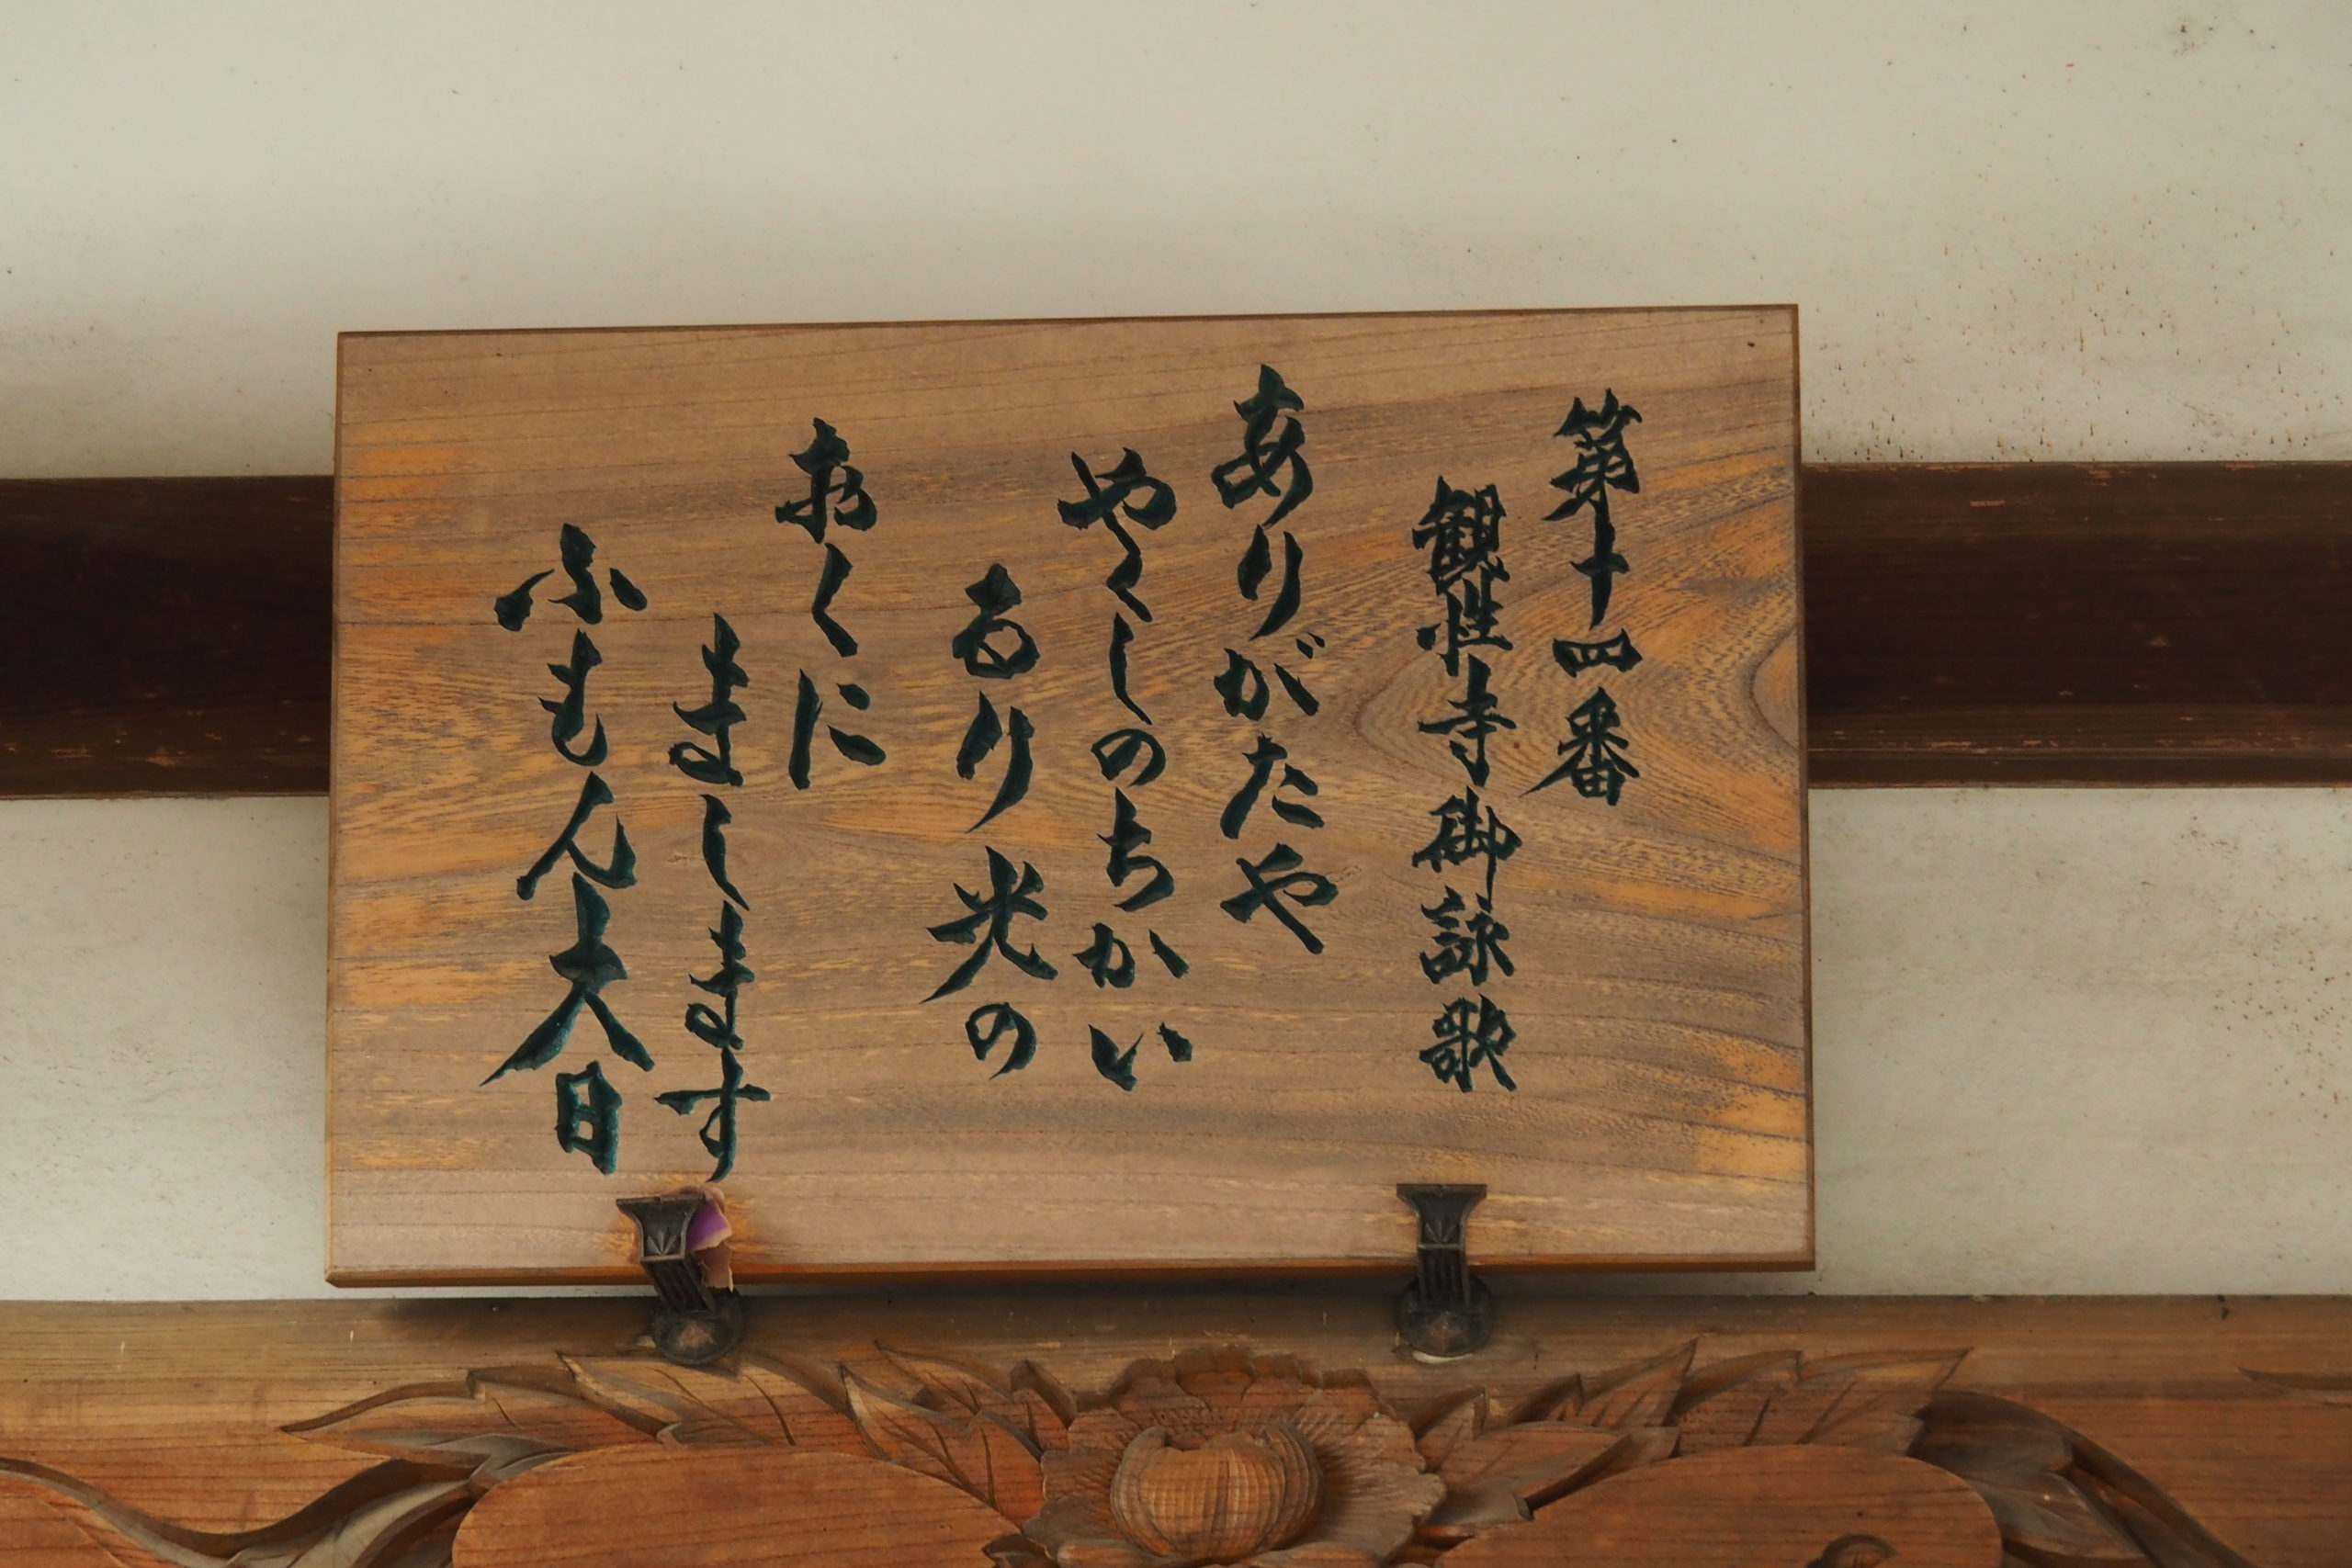 第十四番
観性寺御詠歌
ありがたや
やくしのちかい
るり光の
おくに
まします
ふもん大日